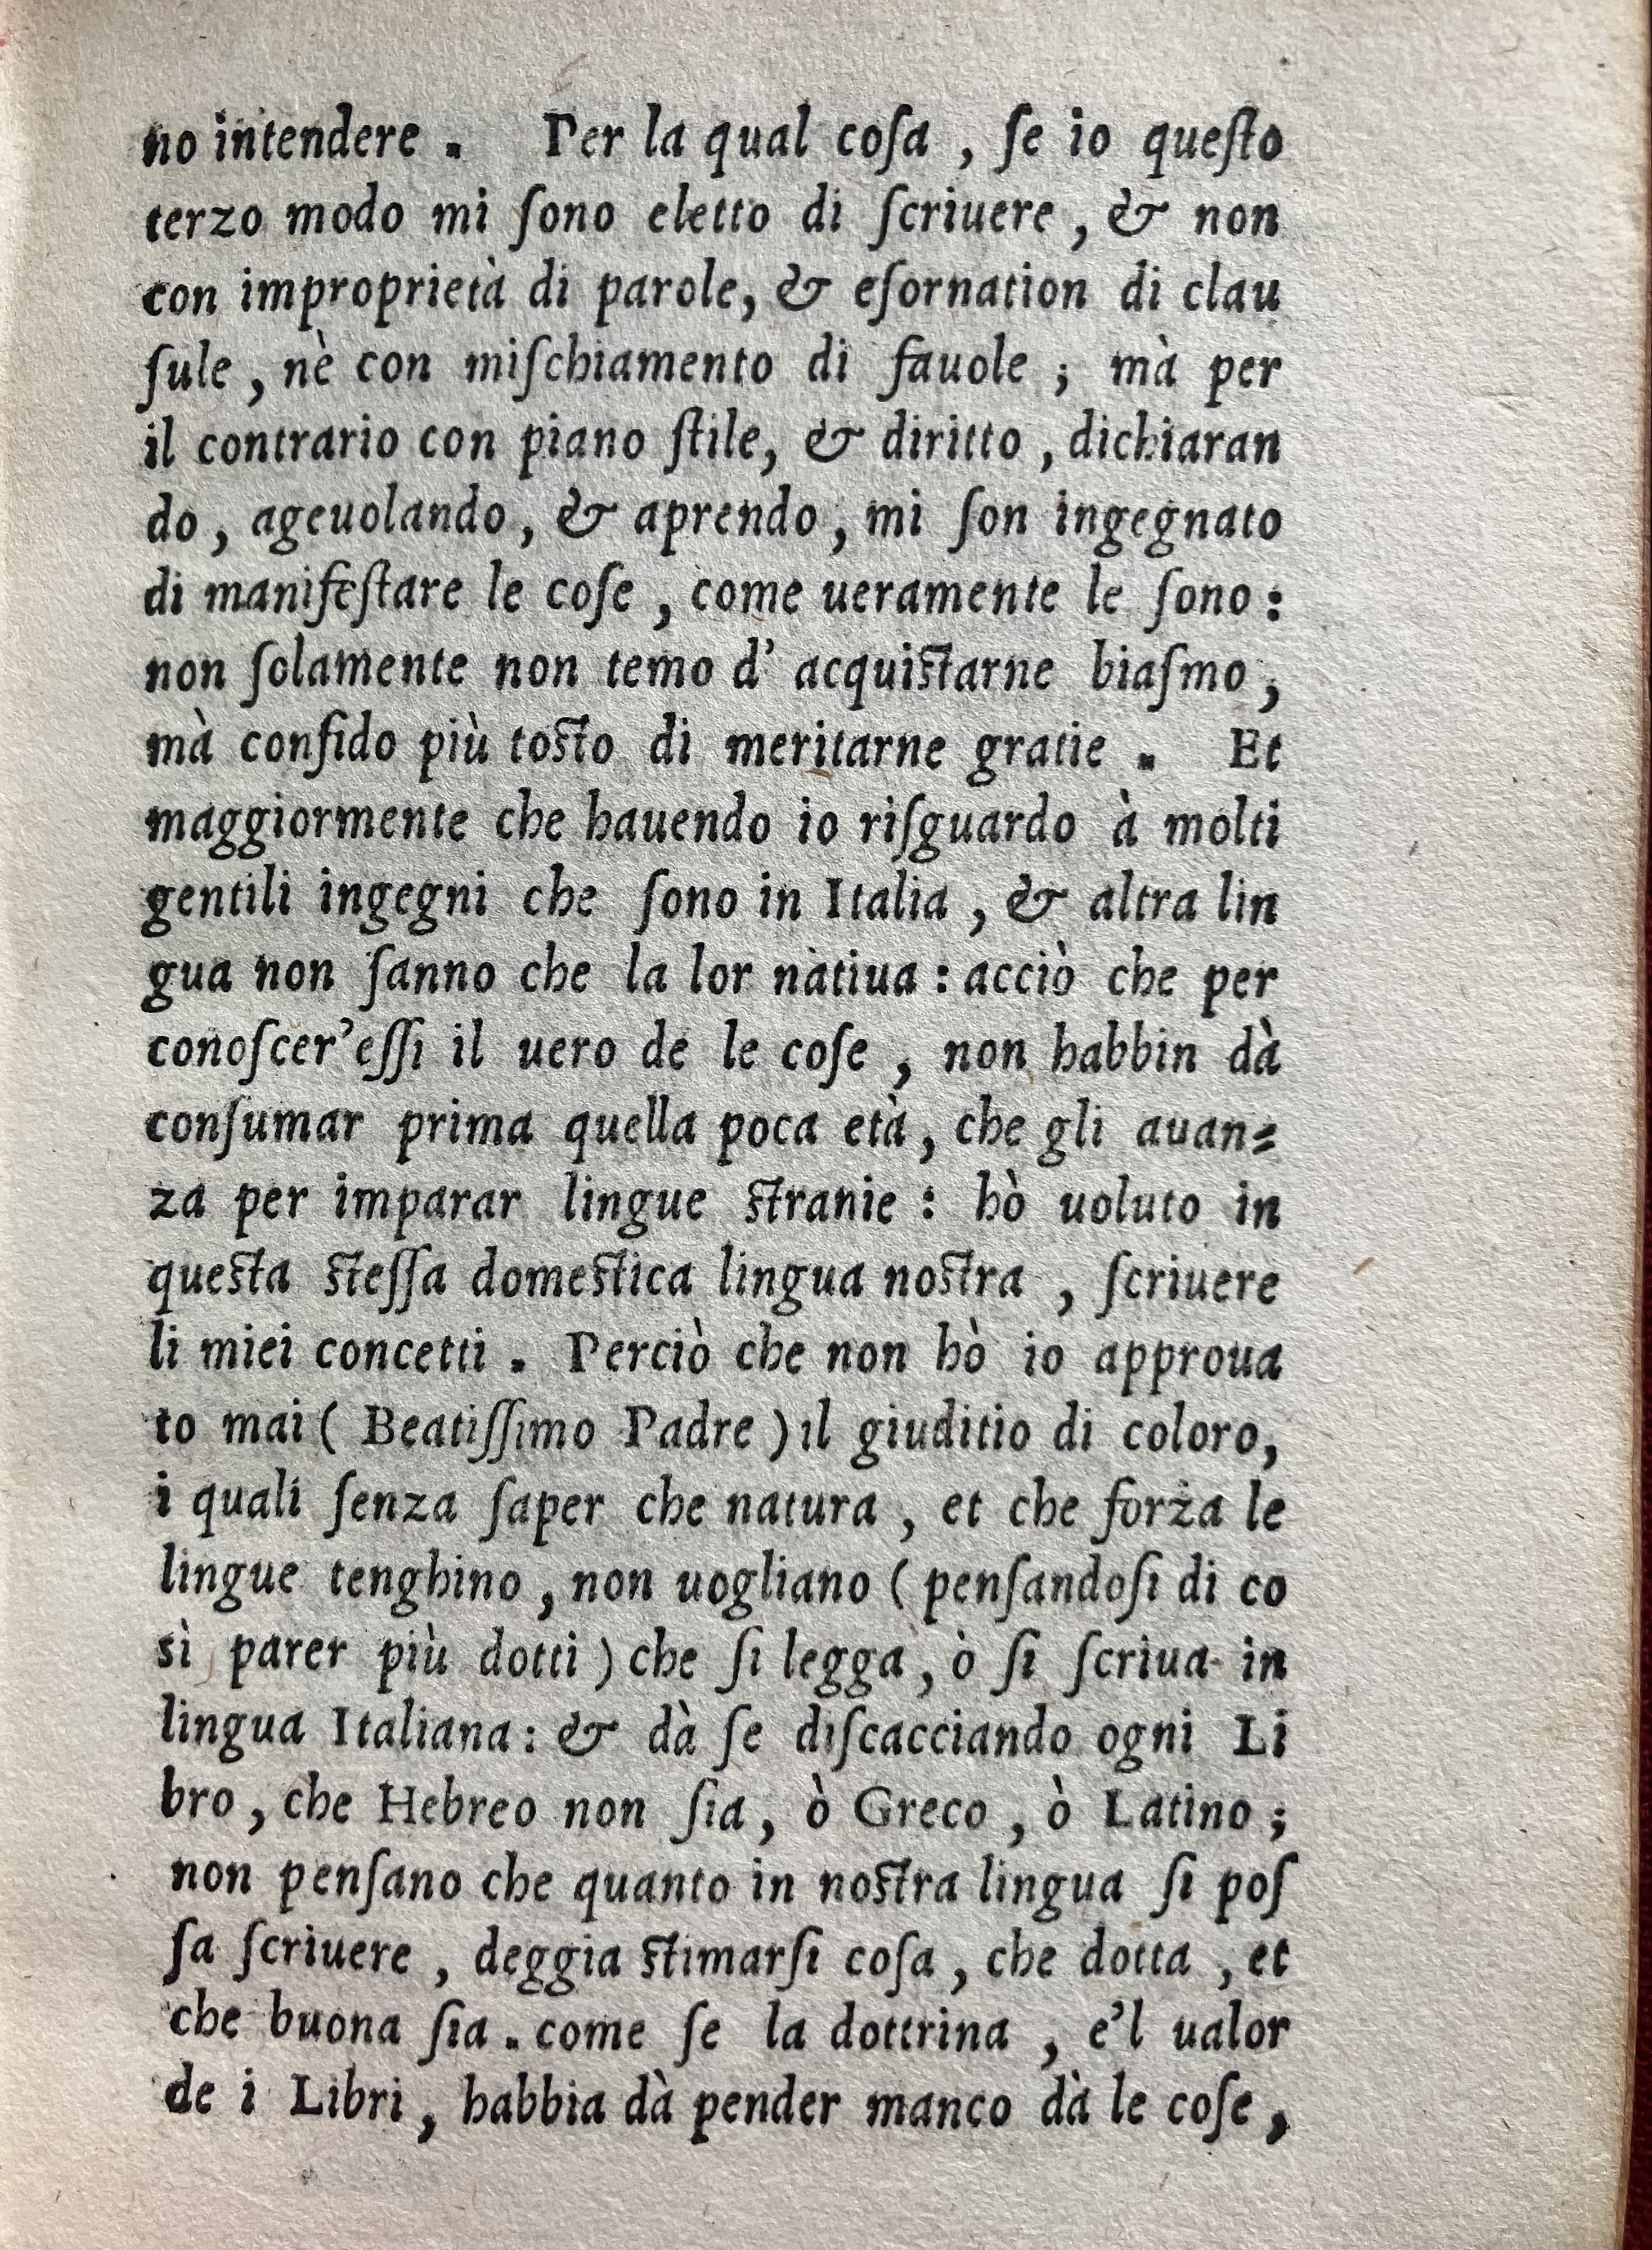 no intendere. Per la qual coſa, ſe io queſto
terzo modo mi ſono eletto di ſcriuere, & non
con improprietà di parole, & eſornation di clau
ſule, nè con miſchiamento di fauole; mà per
il contrario con piano ſtile, & diritto, dichiaran
do, ageuolando, & aprendo, mi ſon ingegnato
di manifeſtare le coſe, come ueramente le ſono:
non ſolamente non temo d' acquiſtarne biaſmo,
mà confido più toſto di meritarne gratie. Et
maggiormente che hauendo io riſguardo à molti
gentili ingegni che ſono in Italia, & altra lin
gua non ſanno che la lor natiua: acciò che per
conoſcer'eſſi il uero de le coſe, non habbin dà
conſumar prima quella poca età, che gli auan=
za per imparar lingue ſtranie: hò uoluto in
queſta ſteſſa domeſtica lingua noſtra, ſcriuere
li miei concetti. Perciò che non hò io approua
to mai (Beatiſſimo Padre) il giuditio di coloro,
i quali ſenza ſaper che natura, et che forza le
lingue tenghino, non uogliano (penſandoſi di co
sì parer più dotti) che ſi legga, ò ſi ſcriua in
lingua Italiana: & dà ſe diſcacciando ogni Li
bro, che Hebreo non ſia, ò Greco, ò Latino;
non penſano che quanto in noſtra lingua ſi poſ
ſa ſcriuere, deggia ſtimarſi coſa, che dotta, et
che buona ſia. come ſe la dottrina, e'l ualor
de i Libri, habbia dà pender manco dà le coſe,